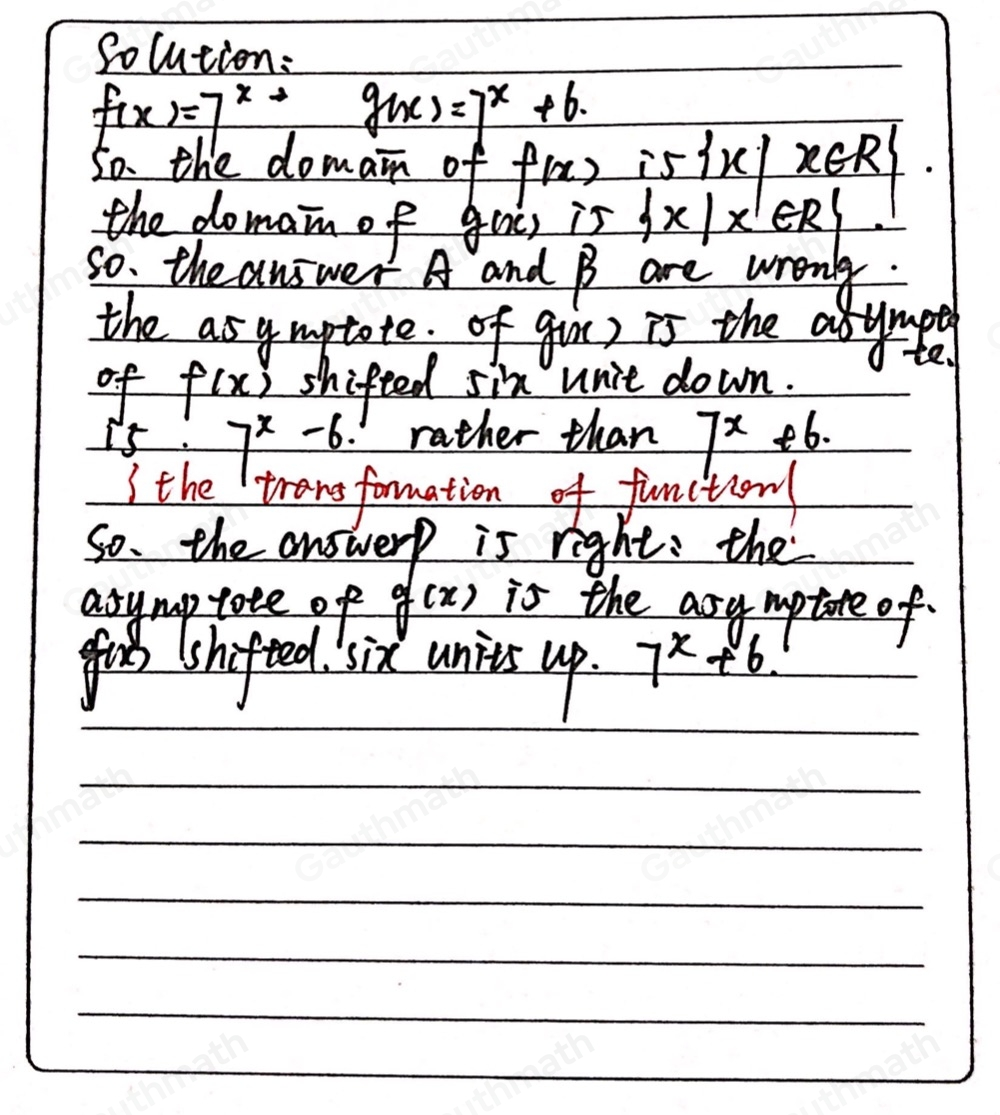 Solution:
f(x)=7^x, g(x)=7^x+6.
So. the domain of f(x) is {x| x∈R}.
the domain of g(x) is {x|x∈R}.
so. the answer A and B are wrong.
the asymptote. of g(x) is the asympto
te.
of f(x) shifted six unit down.
is. 7^x-6. rather than 7^x+6.
{the transformation of function}
So. the answer D is right: the
asymptote of g(x) is the asymptote of.
f(x) shifted. six units up. 7^x+6.
Gauthmath